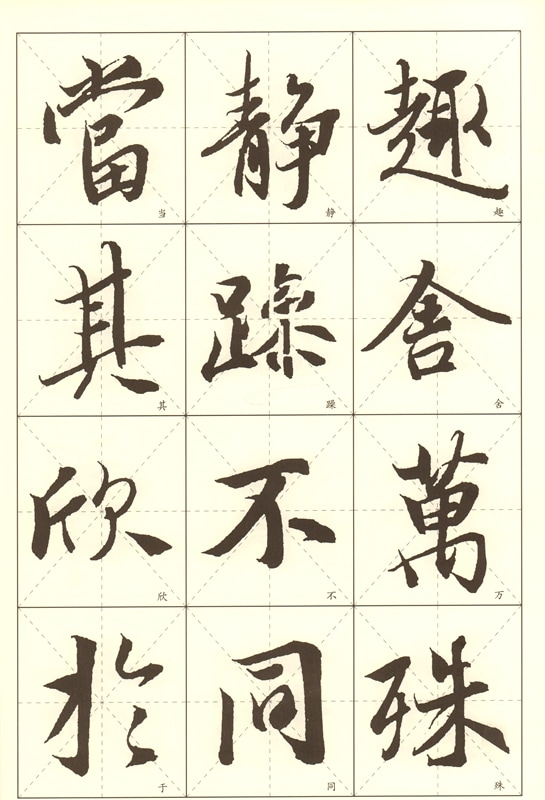 趣舍萬殊
趣舍万殊
靜躁不同
静躁不同
當其欣於
当其欣于